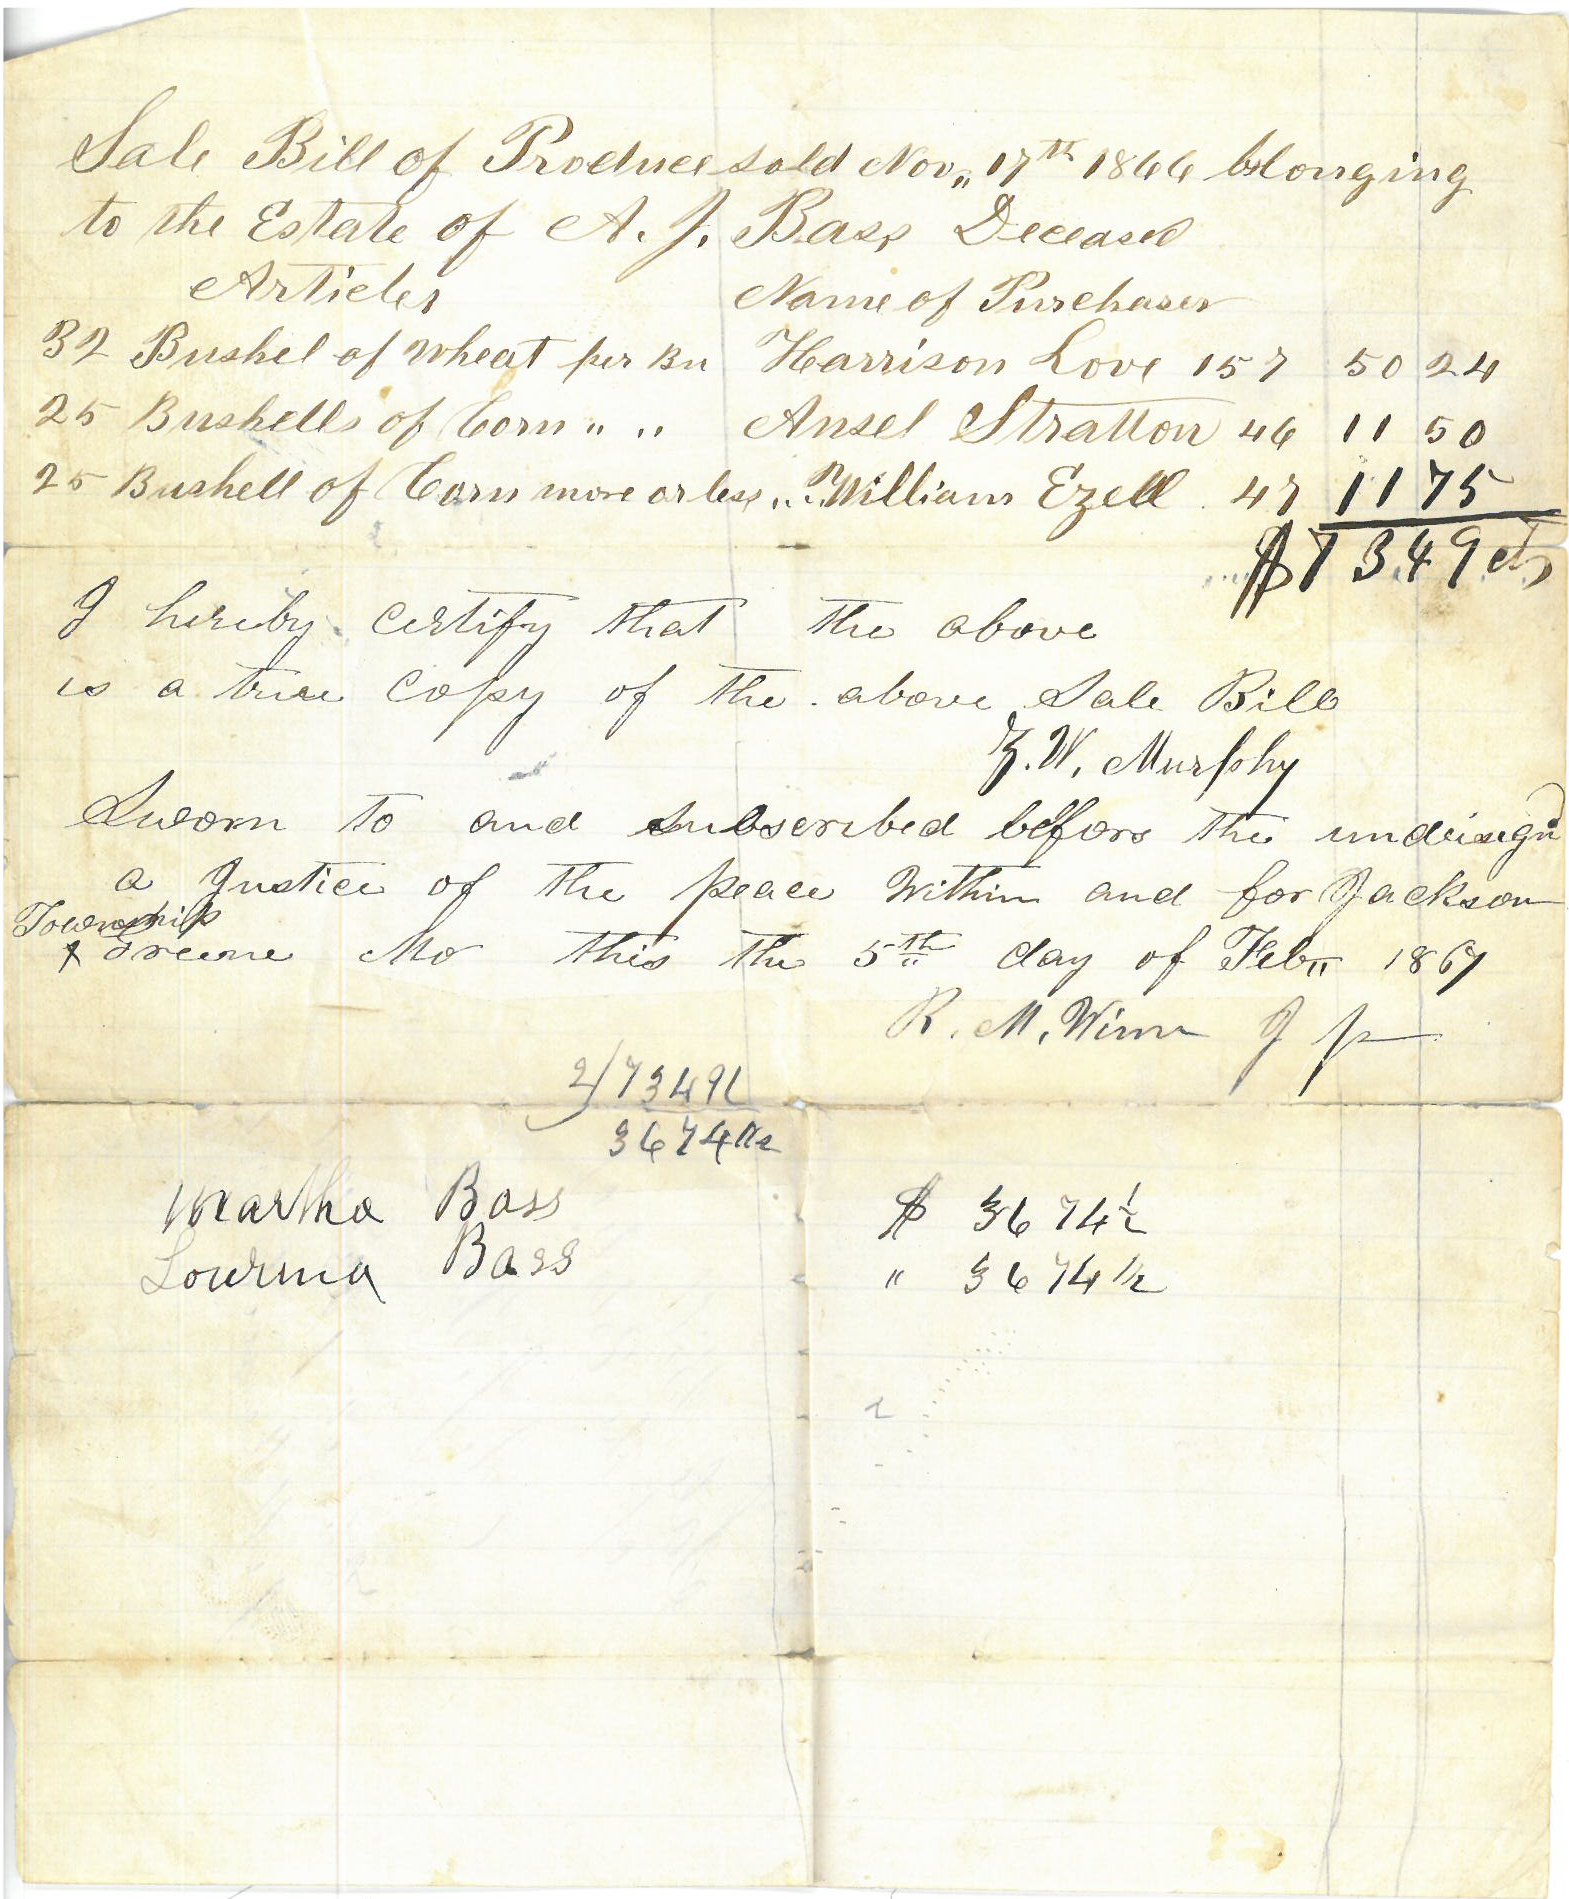 Sale Bill of Produce sold Nov,, 17th 1866 belonging
to the Estate of A. J. Bass Deceased
Articles Name of Purchaser
32 Bushel of Wheat per Bu Harrison Love 157 50 24
25 Bushells of Corn " " Ansel Stratton 46 11 50
25 Bushell of Corn more or less, " " William Ezell 47 11 75
$73 49 cts
I hereby certify that the above
is a true copy of the above Sale Bill
Z. W. Murphy
Sworn to and subscribed before the undersignd
a Justice of the peace Within and for Jackson
Township
x Greene Mo this the 5th day of Feb,, 1867
R. M. Winn J P
2/7349
3674 1/2
Martha Bass $ 3674 1/2
Lourina Bass " 3674 1/2